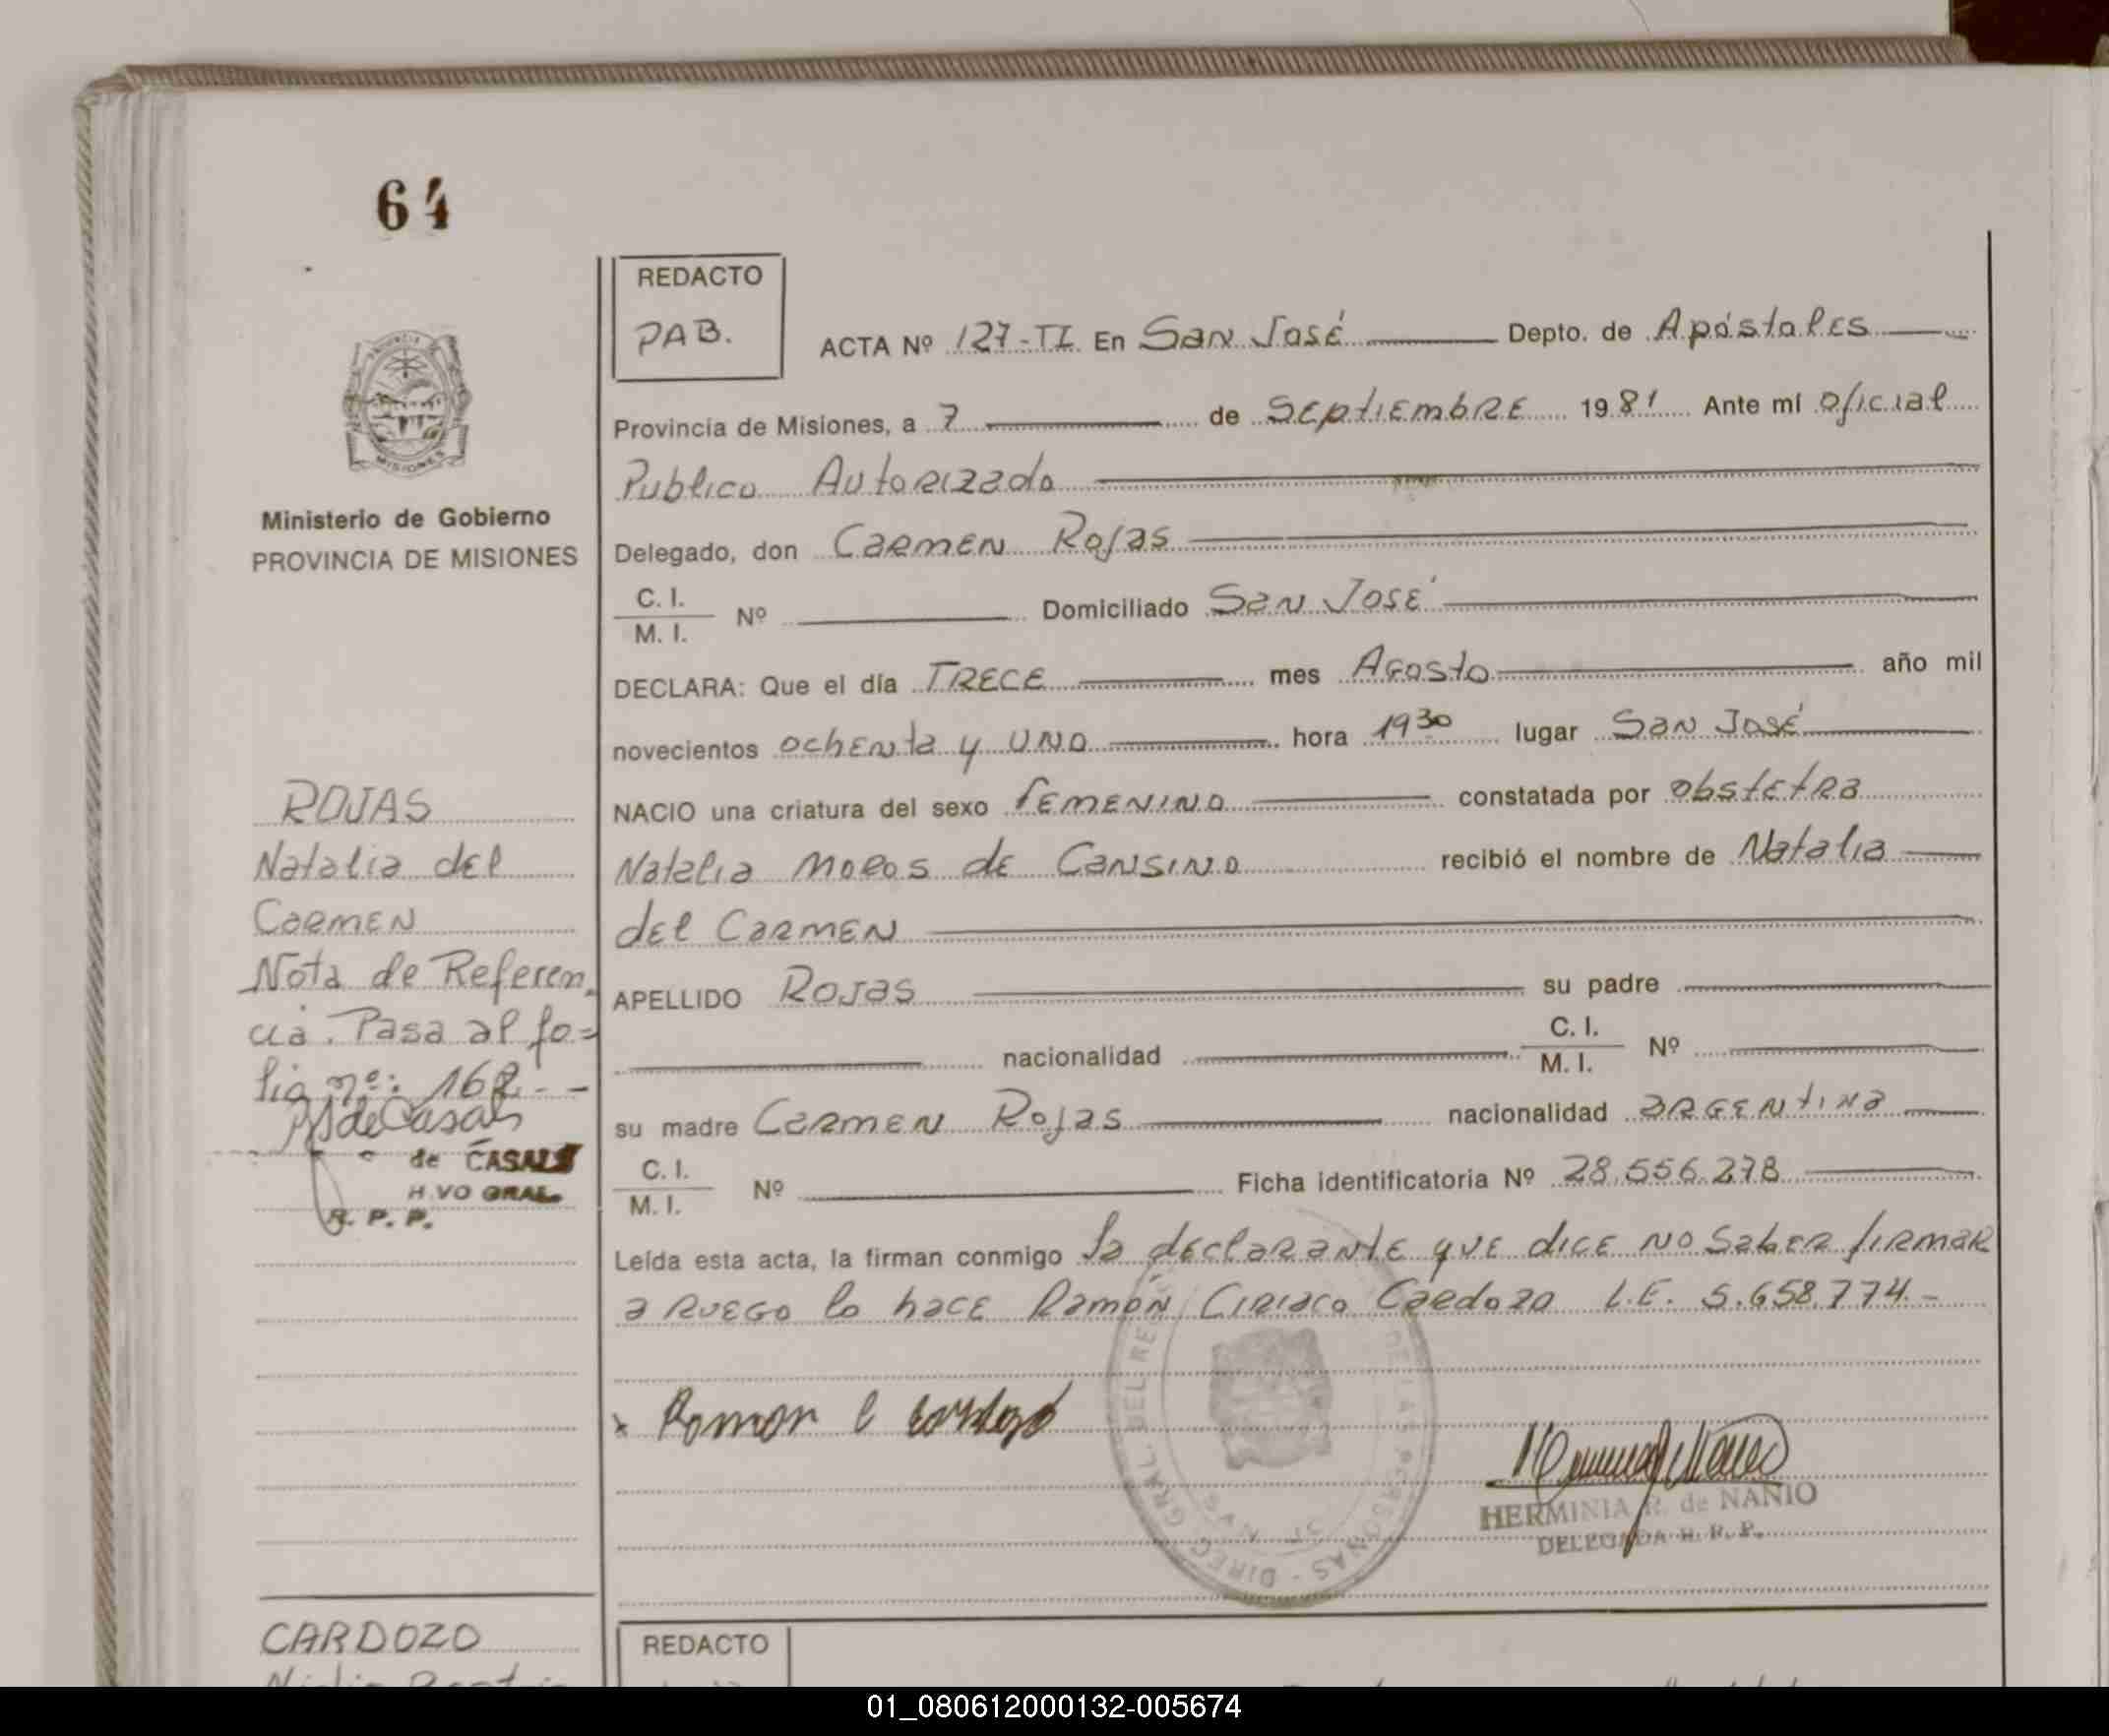 64
REDACTO
PAB.
ACTA Nº 127-TI En San José Depto. de Apóstoles
Provincia de Misiones, a 7 de Septiembre 1981 Ante mí oficial
Publico Autorizado
Ministerio de Gobierno
PROVINCIA DE MISIONES
Delegado, don Carmen Rojas
C. I.
M. I. Nº Domiciliado San José
DECLARA: Que el día TRECE mes Agosto año mil
novecientos ochenta y uno hora 19 30 lugar San José
NACIO una criatura del sexo femenino constatada por obstetra
Natalia Moros de Cansino recibió el nombre de Natalia
del Carmen
APELLIDO Rojas su padre
nacionalidad C. I.
M. I. Nº
su madre Carmen Rojas nacionalidad argentina
C. I.
M. I. Nº Ficha identificatoria Nº 28.556.278
Leída esta acta, la firman conmigo la declarante que dice no saber firmar
a ruego lo hace Ramón Ciriaco Cardozo L.E. 5.658.774.-
ROJAS
Natalia del
Carmen
Nota de Referen
cia. Pasa al fo=
lio nº: 162--
de CASALS
R. P. P.
x Ramon C Cardozo
HERMINIA R. de NAÑIO
DELEGADA R. R. P.
CARDOZO
REDACTO
01_080612000132-005674